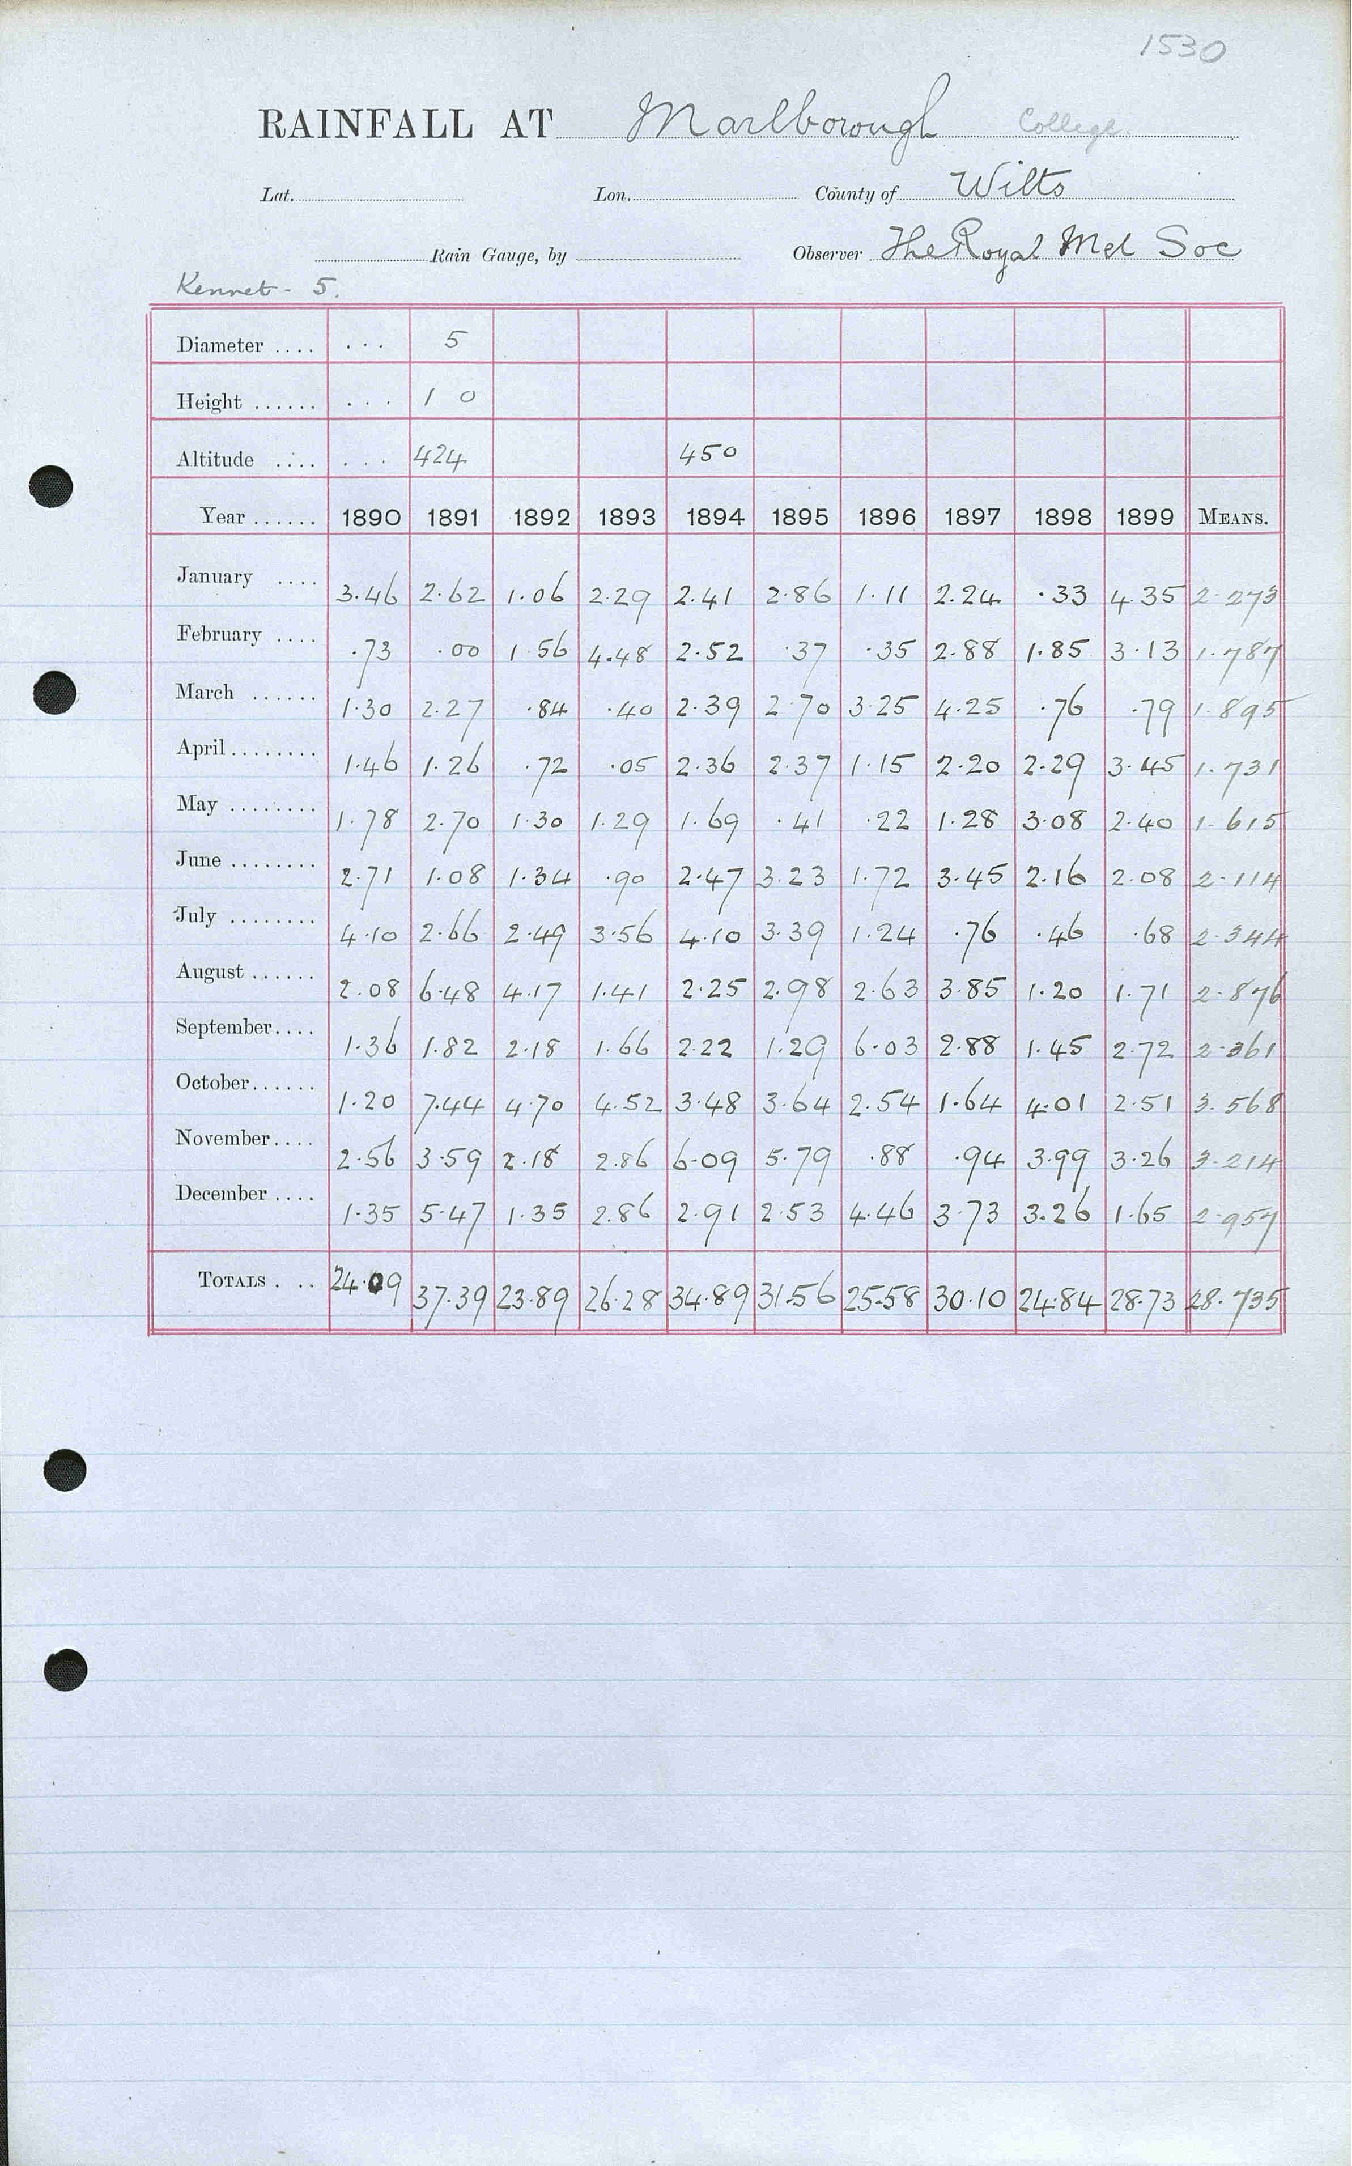 1530
RAINFALL AT Marlborough College
Lat. Lon. County of Wilts
Rain Gauge, by Observer The Royal Met Soc
Kennet - 5.
Diameter .... ... 5
Height ...... ... 1 0
Altitude .... ... 424 450
Year ...... 1890 1891 1892 1893 1894 1895 1896 1897 1898 1899 MEANS.
January .... 3.46 2.62 1.06 2.29 2.41 2.86 1.11 2.24 .33 4.35 2.273
February .... .73 .00 1.56 4.48 2.52 .37 .35 2.88 1.85 3.13 1.787
March ...... 1.30 2.27 .84 .40 2.39 2.70 3.25 4.25 .76 .79 1.895
April ........ 1.46 1.26 .72 .05 2.36 2.37 1.15 2.20 2.29 3.45 1.731
May ........ 1.78 2.70 1.30 1.29 1.69 .41 .22 1.28 3.08 2.40 1.615
June ........ 2.71 1.08 1.34 .90 2.47 3.23 1.72 3.45 2.16 2.08 2.114
July ........ 4.10 2.66 2.49 3.56 4.10 3.39 1.24 .76 .46 .68 2.344
August ...... 2.08 6.48 4.17 1.41 2.25 2.98 2.63 3.85 1.20 1.71 2.876
September .... 1.36 1.82 2.18 1.66 2.22 1.29 6.03 2.88 1.45 2.72 2.361
October ...... 1.20 7.44 4.70 4.52 3.48 3.64 2.54 1.64 4.01 2.51 3.568
November .... 2.56 3.59 2.18 2.86 6.09 5.79 .88 .94 3.99 3.26 3.214
December .... 1.35 5.47 1.35 2.86 2.91 2.53 4.46 3.73 3.26 1.65 2.957
TOTALS . .. 24.09 37.39 23.89 26.28 34.89 31.56 25.58 30.10 24.84 28.73 28.735